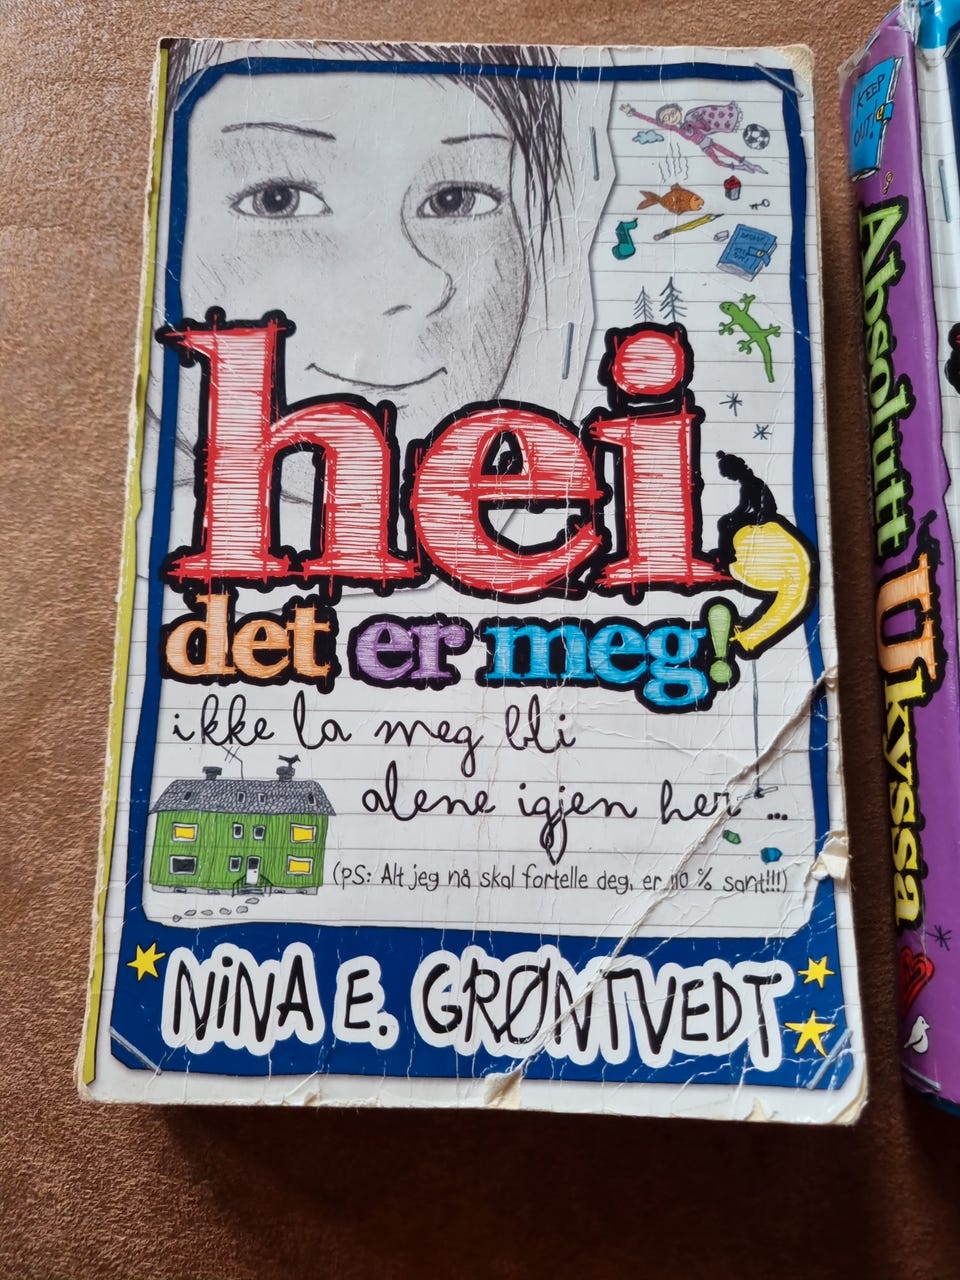 hei,
det er meg!
ikke la meg bli
alene igjen her ...
(PS: Alt jeg nå skal fortelle deg, er 110 % sant!!!)
NINA E. GRØNTVEDT
KEEP
OUT!
Absolutt Ukyssa